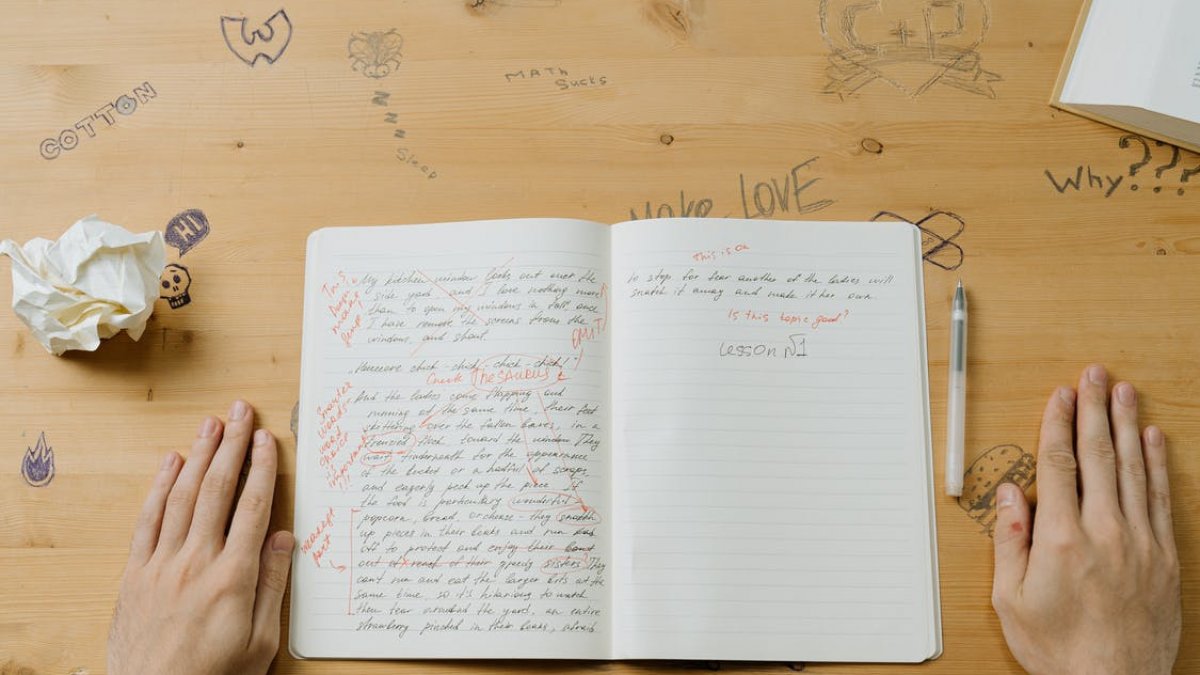 COTTON
W
NNN
Sleep
MATH
Sucks
Make LOVE
Why???
HI
My kitchen window looks out over the
side yard, and I love nothing more
than to open my windows in fall, once
I have remove the screens from the
window, and shout.
OMIT!
"Heeeeere chick-chick-chick-chick!"
Check THESAURUS
And the ladies come flapping and
running at the same time, their feet
skittering over the fallen leaves, in a
frenzied flock toward the window. They
wait underneath for the appearance
of the bucket or a handful of scraps,
and eagerly peck up the piece. If
the food is particulary wonderful -
popcorn, bread, or cheese - they snatch
up pieces in their beaks and run
off to protect and enjoy their
out of reach of their greedy sisters. They
can't run and eat the larger bits at the
same time, so it's hilarious to watch
them tear around the yard, an entire
strawberry pinched in their beaks, afraid
Smarter
words-
word
choice
is
important
!!!
weakest
part
This is on
to stop for fear another of the ladies will
snatch it away and make it her own.
Is this topic good?
Lesson №1